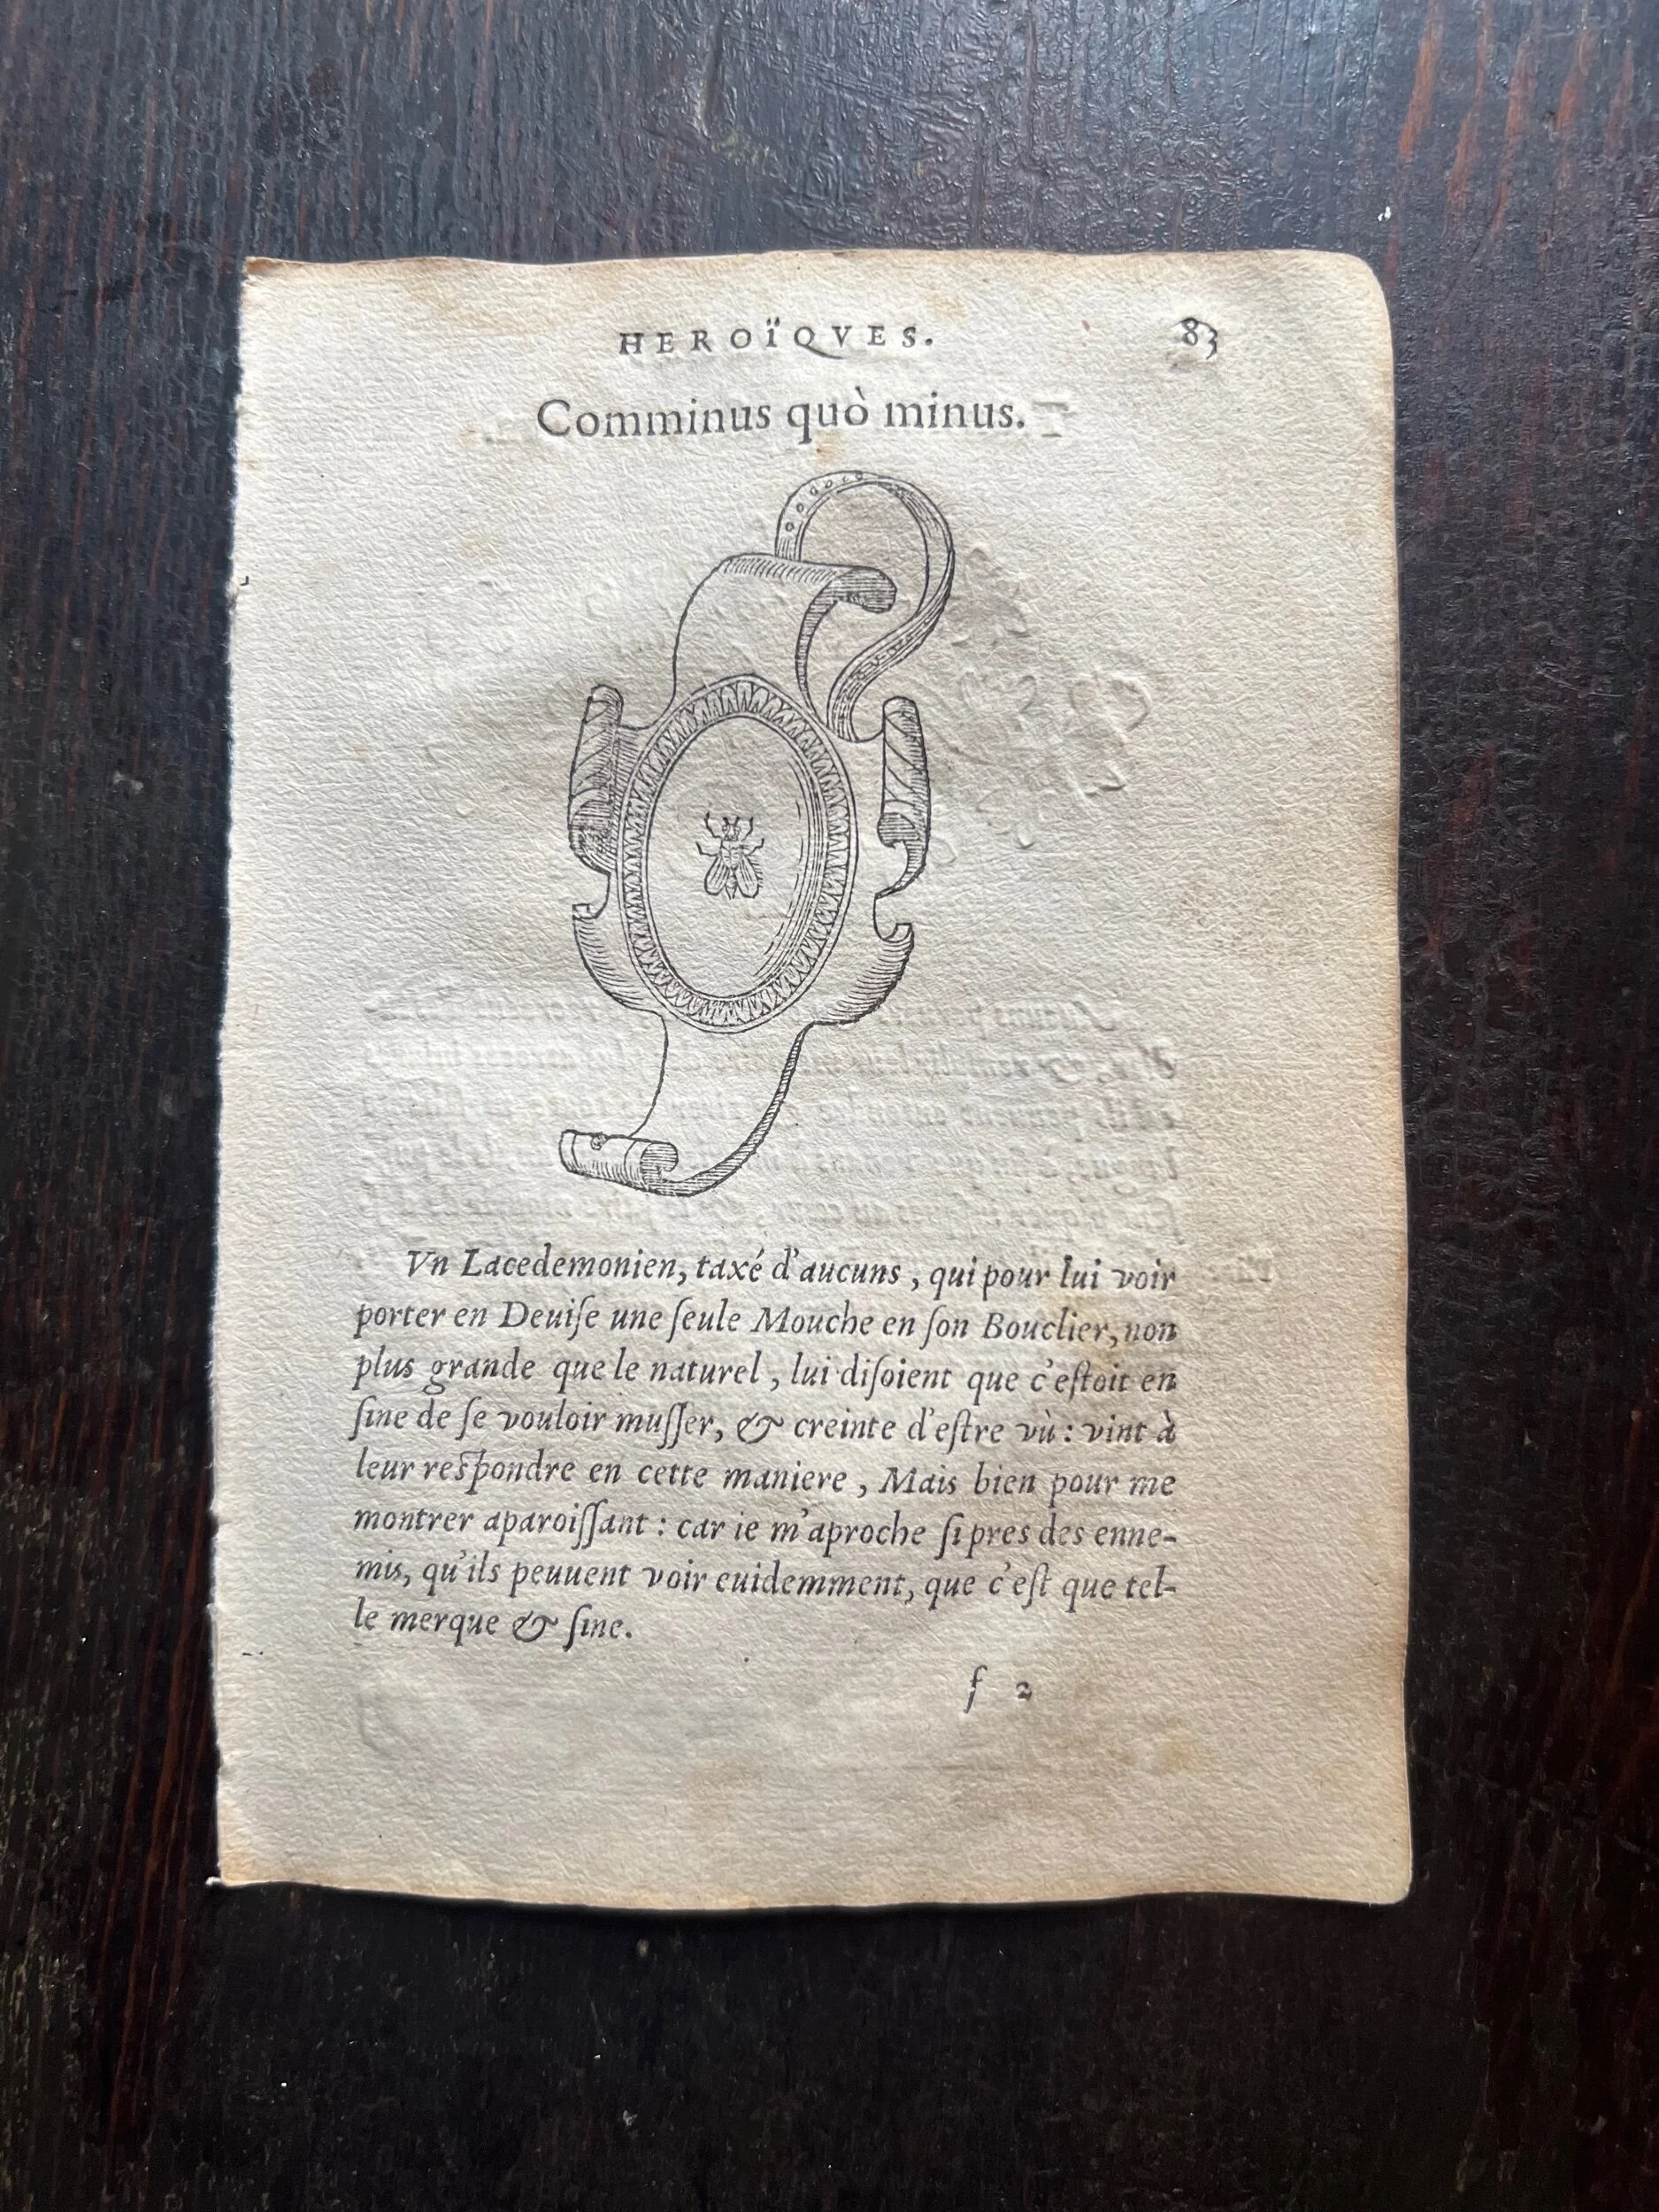 HEROÏQVES. 83
Comminus quò minus.
Vn Lacedemonien, taxé d'aucuns, qui pour lui voir
porter en Deuiſe une ſeule Mouche en ſon Bouclier, non
plus grande que le naturel, lui diſoient que c'eſtoit en
ſine de ſe vouloir muſſer, & creinte d'eſtre vù: vint à
leur reſpondre en cette maniere, Mais bien pour me
montrer aparoiſſant: car ie m'aproche ſi pres des enne-
mis, qu'ils peuuent voir euidemment, que c'eſt que tel-
le merque & ſine.
f 2